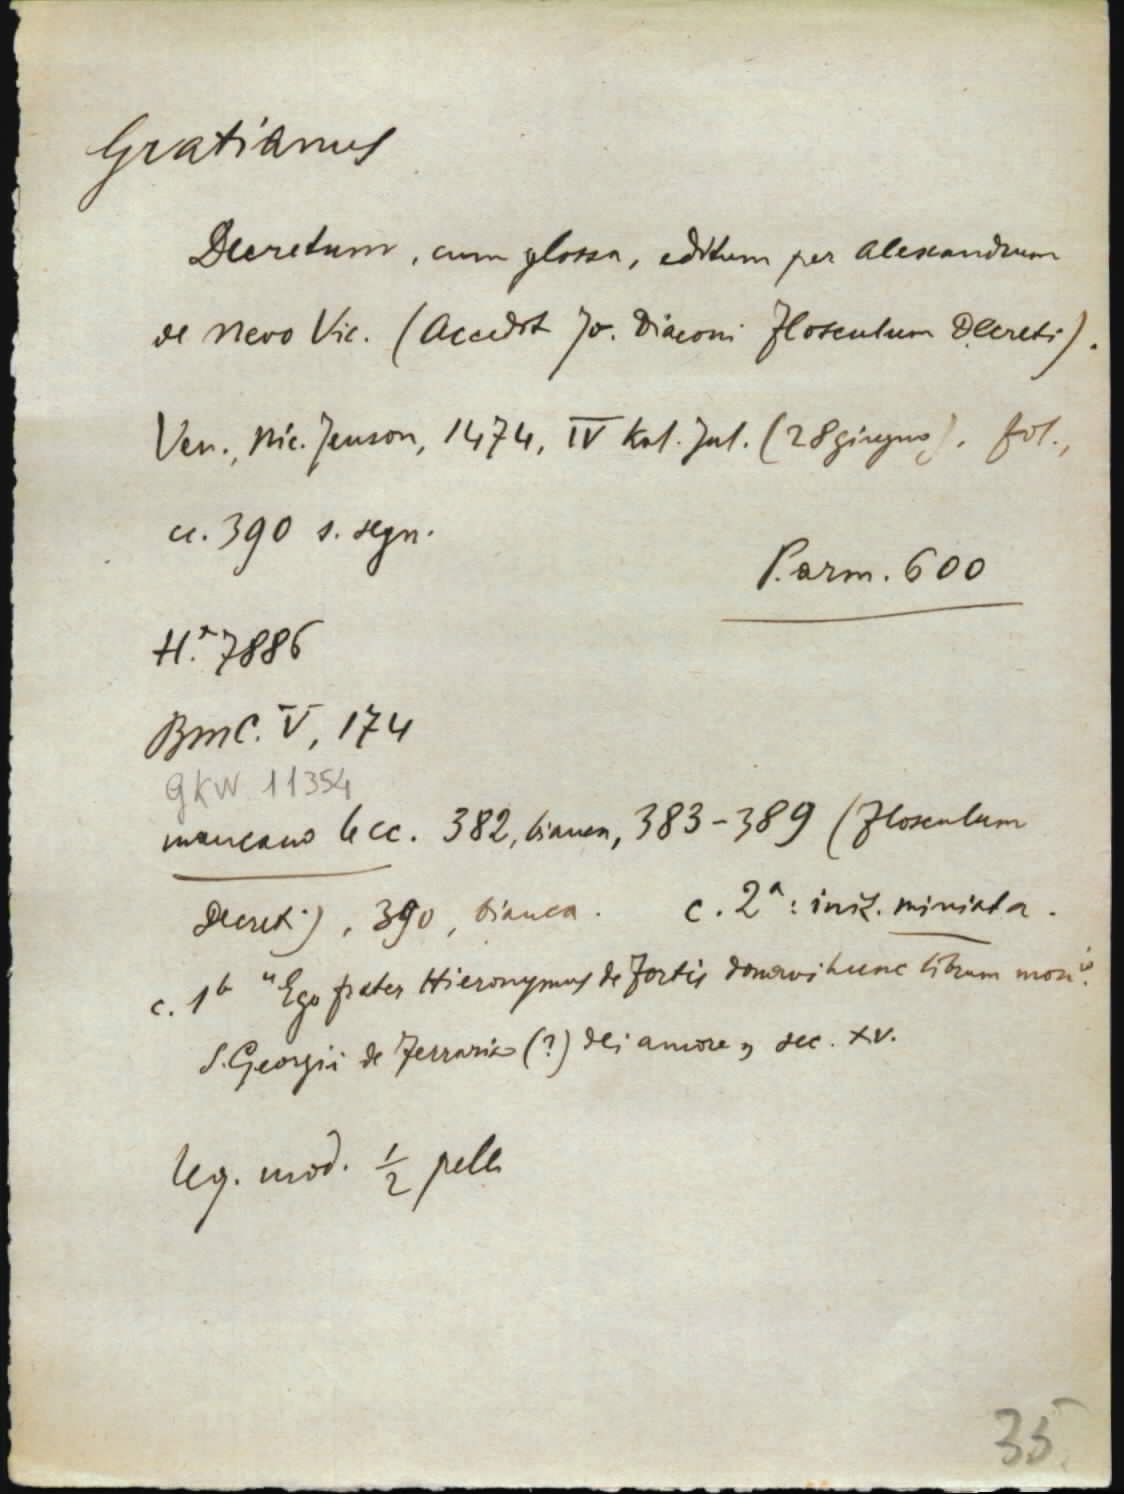 Gratianus
Decretum, cum glossa, editum per Alexandrum
de Nevo Vic. (Accedit Jo. Diaconi Flosculum Decreti).
Ven., Nic. Jenson, 1474, IV Kal. Jul. (28 giugno). fol.,
cc. 390 s. segn.
Parm. 600
H.* 7886
BMC. V, 174
GKW 11354
mancano le cc. 382, bianca, 383-389 (Flosculum
Decreti), 390, bianca. c. 2ª: iniz. miniata.
c. 1b "Ego frater Hieronymus de Fortis donavi hunc librum mon.io
S. Georgii de Ferraria (?) dei amore, sec. XV.
Leg. mod. ½ pelle
35